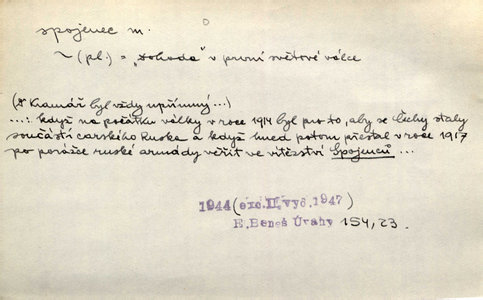 spojenec m.
~ (pl.) = „Dohoda" v první světové válce
(Dr Kramář byl vždy upřímný ...)
...: když na počátku války v roce 1914 byl pro to, aby se Čechy staly
součástí carského Ruska a když hned potom přestal v roce 1917
po porážce ruské armády věřit ve vítězství Spojenců ...
1944 (exc.II.vyd.1947)
E.Beneš Úvahy 154, 23.